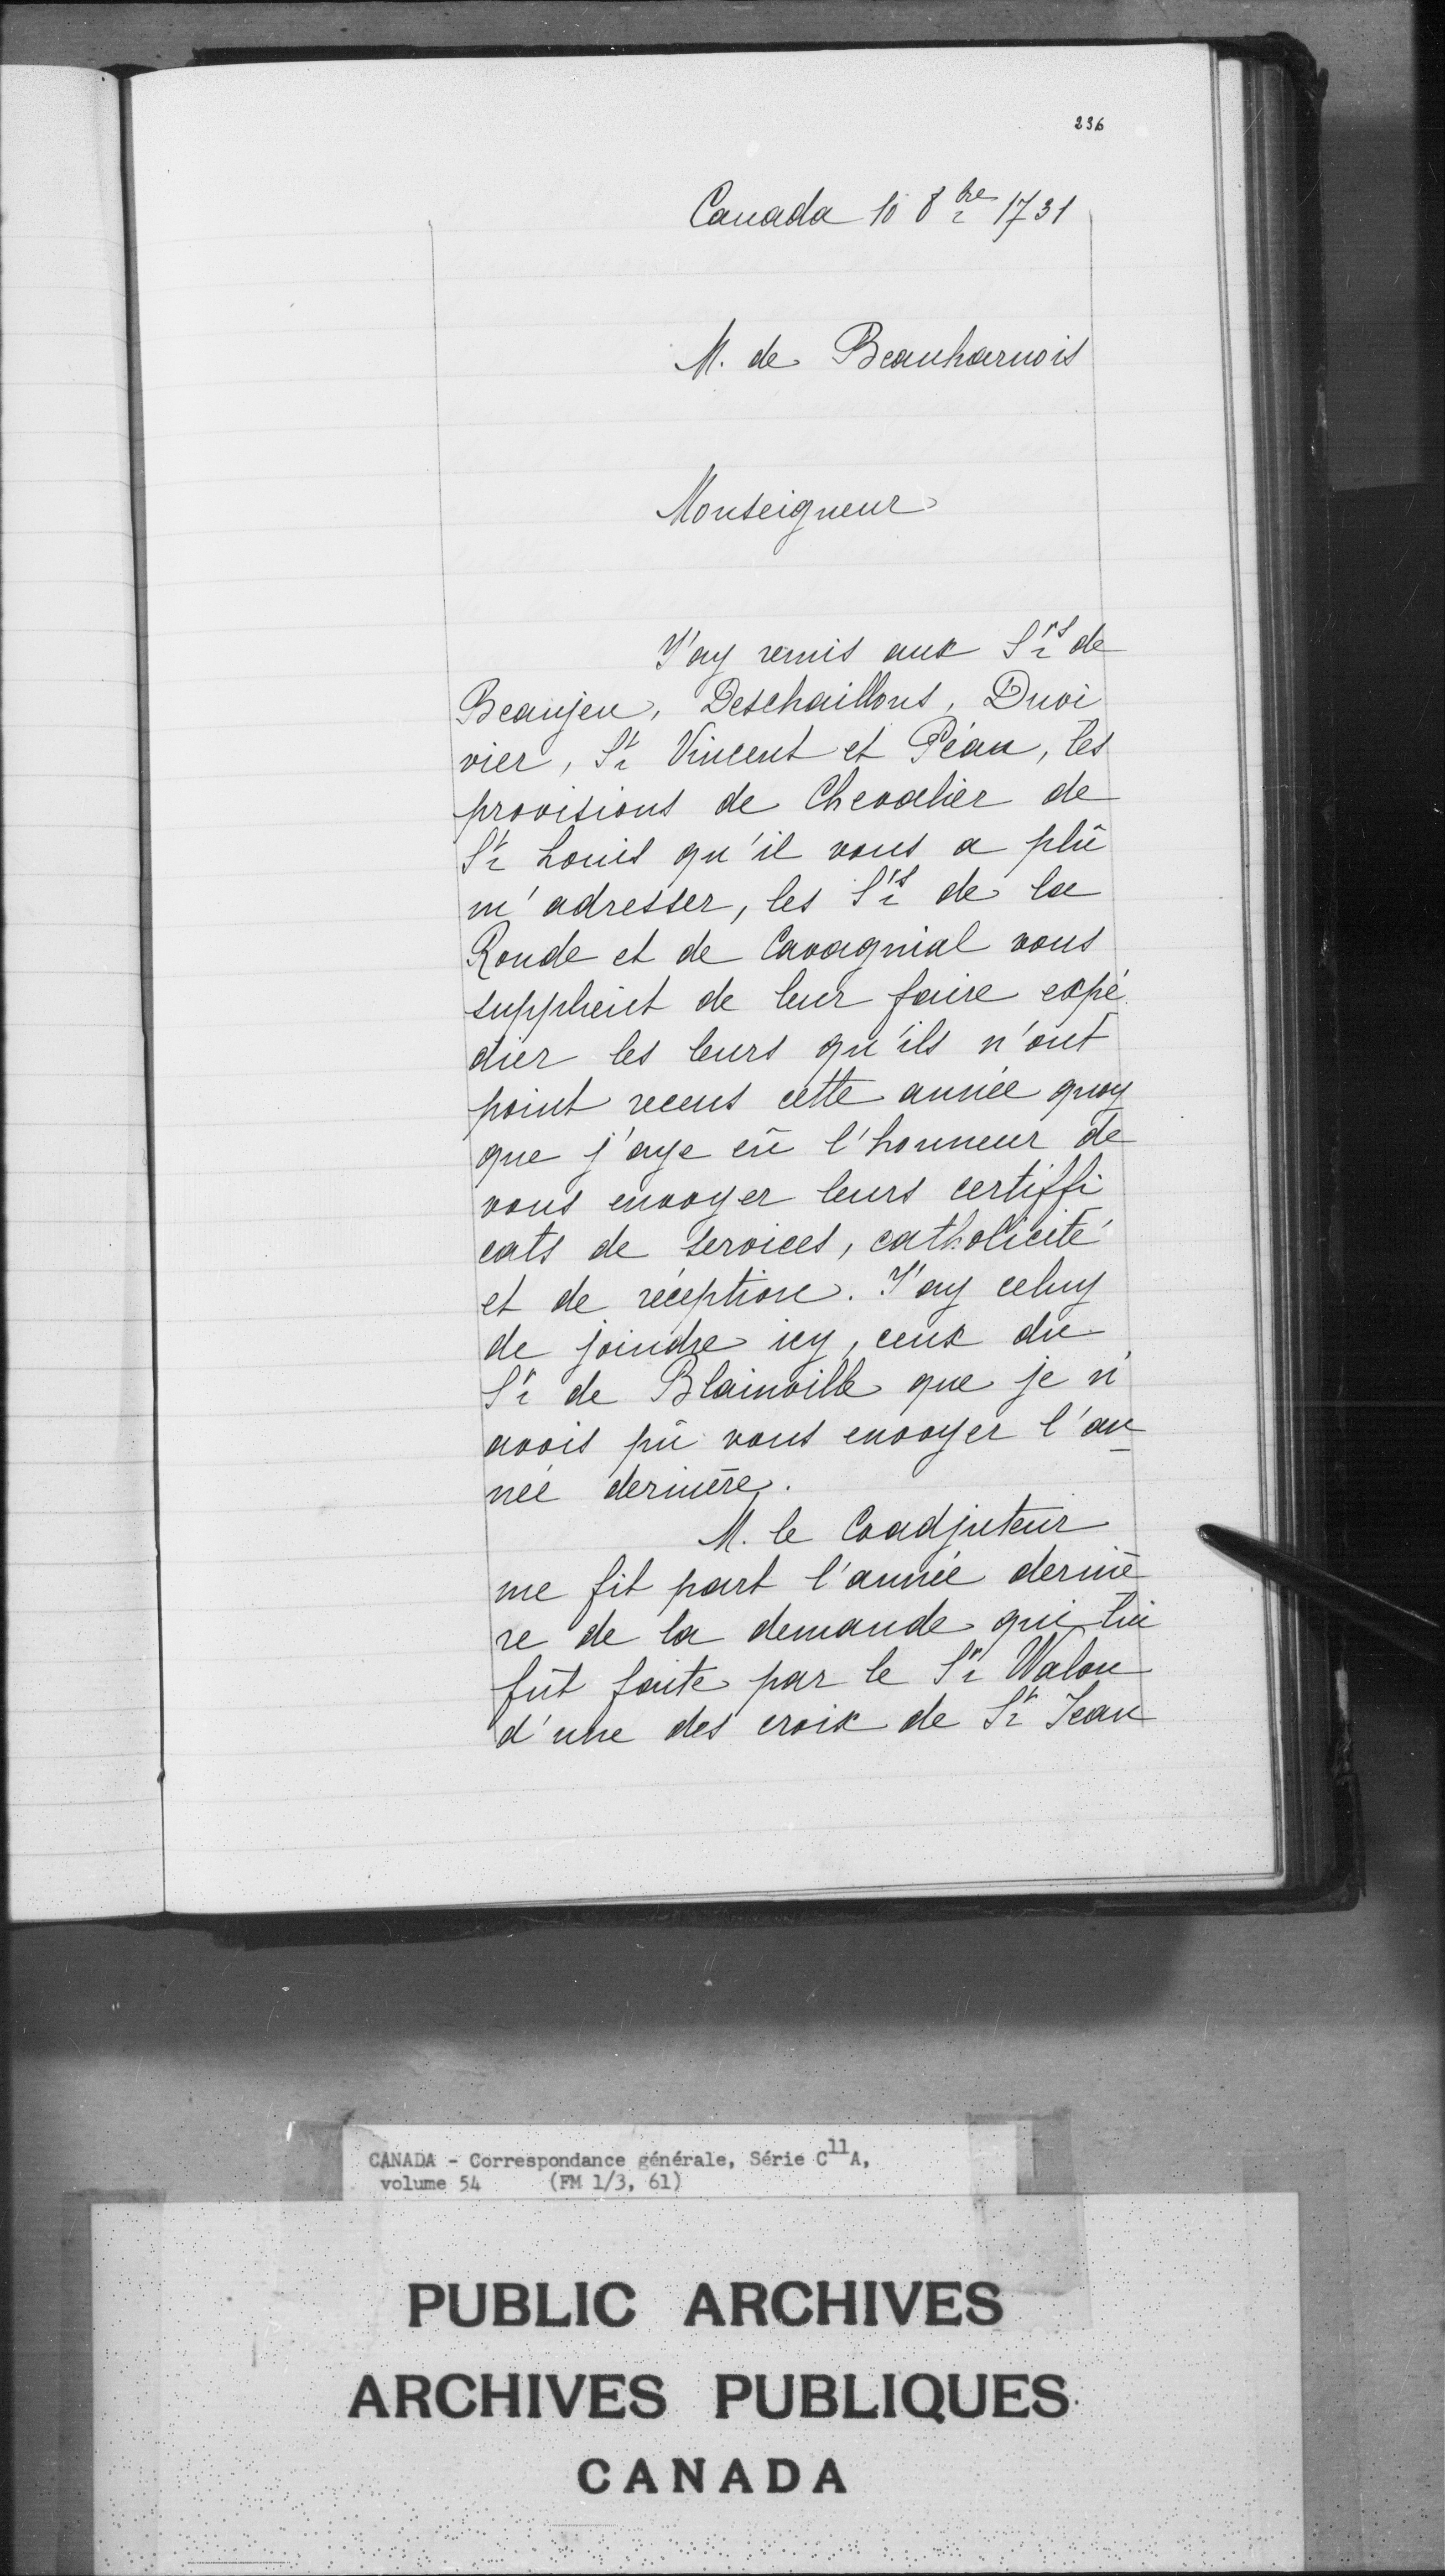 236
Canada 10 8bre 1731
M. de Beauharnois
Monseigneur
J'ay remis aux Srs de
Beaujeu, Deschaillons, Duvi
vier, St Vincent et Péan, les
provisions de Chevalier de
St Louis qu'il vous a plû
m'adresser, les Srs de la
Ronde et de Cavagnial vous
supplient de leur faire expé
dier les leurs qu'ils n'ont
point receus cette année quoy
que j'aye eû l'honneur de
vous envoyer leurs certiffi
cats de services, catholicité
et de réception. J'ay celuy
de joindre icy, ceux du
Sr de Blainville que je n'
avois pû vous envoyer l'an
née dernière.
M. le Coadjuteur
me fit part l'année derniè
re de la demande qui lui
fût faite par le Sr Walon
d'une des croix de St Jean
CANADA - Correspondance générale, Série C11A,
volume 54 (FM 1/3, 61)
PUBLIC ARCHIVES
ARCHIVES PUBLIQUES
CANADA